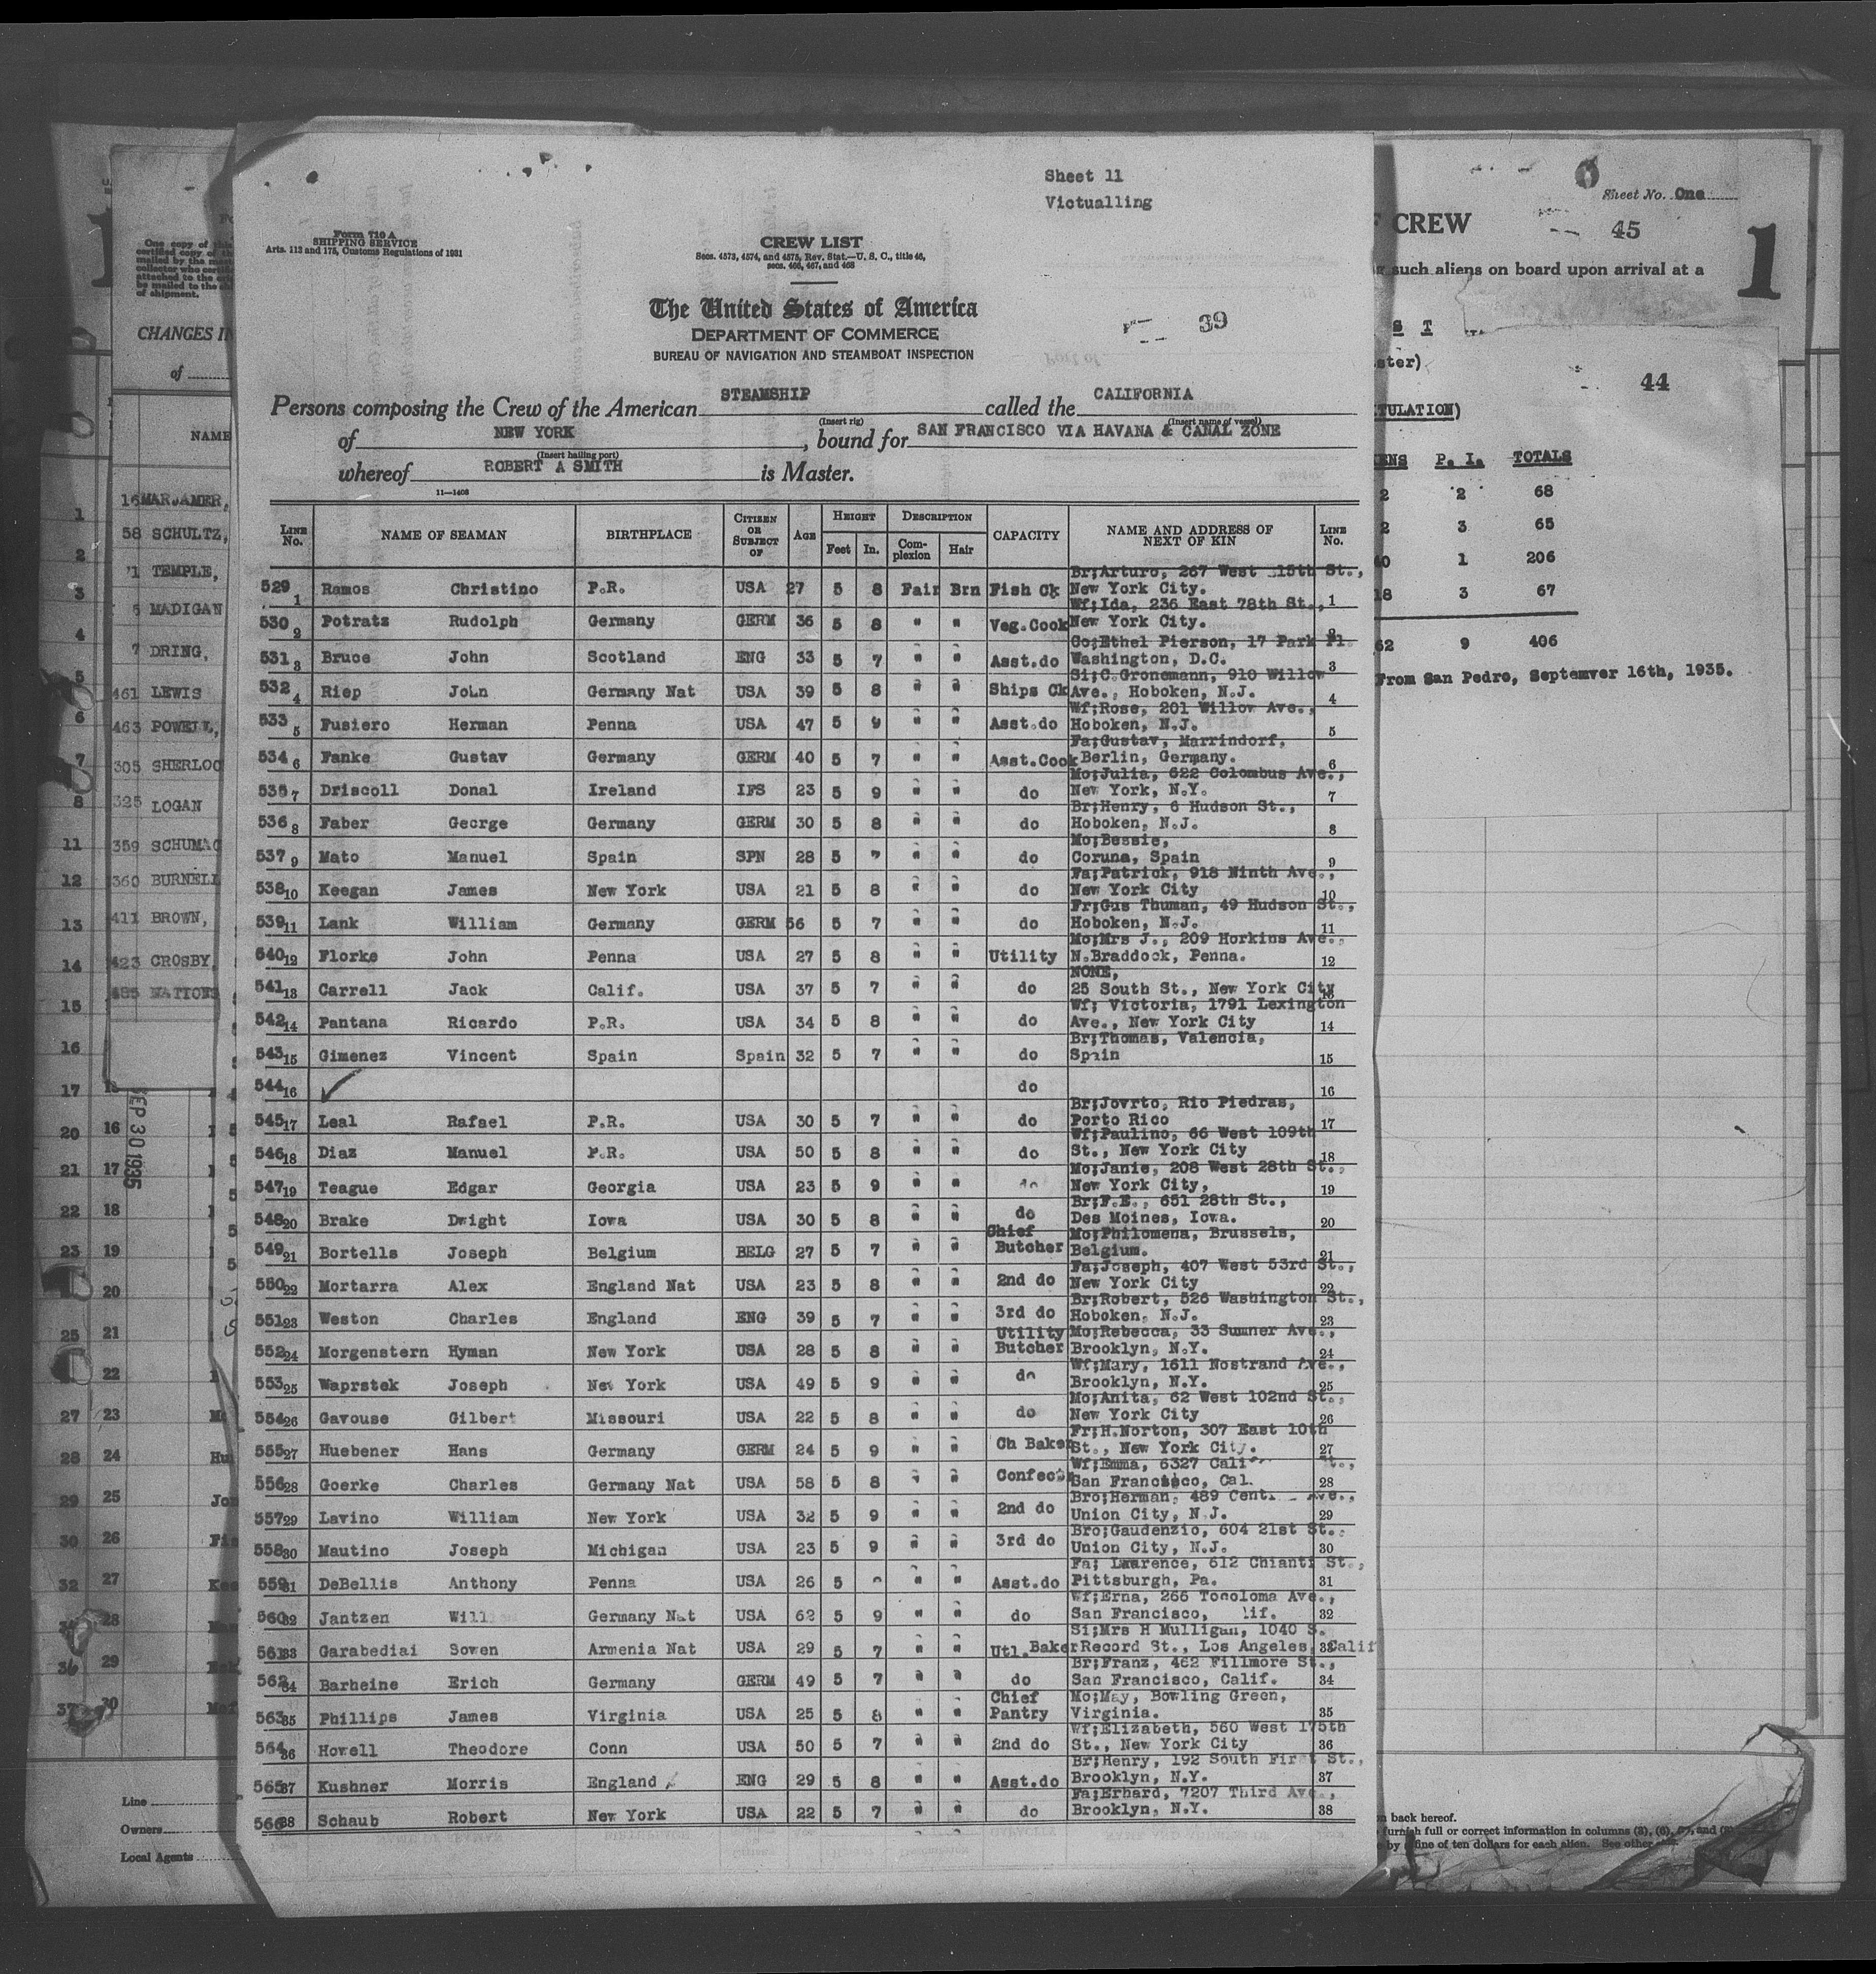 Sheet 11
Victualling
Form 710 A
SHIPPING SERVICE
Arts. 112 and 175, Customs Regulations of 1931
CREW LIST
Secs. 4573, 4574, and 4575, Rev. Stat.—U. S. C., title 46,
secs. 466, 467, and 468
The United States of America
DEPARTMENT OF COMMERCE
BUREAU OF NAVIGATION AND STEAMBOAT INSPECTION
39
Persons composing the Crew of the American STEAMSHIP called the CALIFORNIA
(Insert rig) (Insert name of vessel)
of NEW YORK, bound for SAN FRANCISCO VIA HAVANA & CANAL ZONE
(Insert hailing port)
whereof ROBERT A SMITH is Master.
11—1408
LINE No. NAME OF SEAMAN BIRTHPLACE CITIZEN OR SUBJECT OF AGE HEIGHT Feet In. DESCRIPTION Complexion Hair CAPACITY NAME AND ADDRESS OF NEXT OF KIN LINE No.
529 1 Ramos Christino P.R. USA 27 5 8 Fair Brn Fish Ck Br;Arturo, 267 West 15th St., New York City. 1
530 2 Potratz Rudolph Germany GERM 36 5 8 " " Veg.Cook Wf;Ida, 236 East 78th St., New York City. 2
531 3 Bruce John Scotland ENG 33 5 7 " " Asst.do Co;Ethel Pierson, 17 Park Pl. Washington, D.C. 3
532 4 Riep John Germany Nat USA 39 5 8 " " Ships Ck Si;C.Gronemann, 910 Willow Ave., Hoboken, N.J. 4
533 5 Fusiero Herman Penna USA 47 5 9 " " Asst.do Wf;Rose, 201 Willow Ave., Hoboken, N.J. 5
534 6 Fanke Gustav Germany GERM 40 5 7 " " Asst.Cook Fa;Gustav, Marrindorf, Berlin, Germany. 6
535 7 Driscoll Donal Ireland IFS 23 5 9 " " do Mo;Julia, 622 Colombus Ave., New York, N.Y. 7
536 8 Faber George Germany GERM 30 5 8 " " do Br;Henry, 6 Hudson St., Hoboken, N.J. 8
537 9 Mato Manuel Spain SPN 28 5 7 " " do Mo;Bessie, Coruna, Spain 9
538 10 Keegan James New York USA 21 5 8 " " do Fa;Patrick, 918 Ninth Ave., New York City 10
539 11 Lank William Germany GERM 56 5 7 " " do Fr;Gus Thuman, 49 Hudson St., Hoboken, N.J. 11
540 12 Florke John Penna USA 27 5 8 " " Utility Mo;Mrs J., 209 Horkins Ave., N.Braddock, Penna. 12
541 13 Carrell Jack Calif. USA 37 5 7 " " do NONE, 25 South St., New York City 13
542 14 Pantana Ricardo P.R. USA 34 5 8 " " do Wf; Victoria, 1791 Lexington Ave., New York City 14
543 15 Gimenez Vincent Spain Spain 32 5 7 " " do Br;Thomas, Valencia, Spain 15
544 16 do 16
545 17 Leal Rafael P.R. USA 30 5 7 " " do Br;Jovrto, Rio Piedras, Porto Rico 17
546 18 Diaz Manuel P.R. USA 50 5 8 " " do Wf;Paulino, 66 West 109th St., New York City 18
547 19 Teague Edgar Georgia USA 23 5 9 " " do Mo;Janie, 208 West 28th St., New York City, 19
548 20 Brake Dwight Iowa USA 30 5 8 " " do Br;F.E., 651 28th St., Des Moines, Iowa. 20
549 21 Bortells Joseph Belgium BELG 27 5 7 " " Chief Butcher Mo;Philomena, Brussels, Belgium. 21
550 22 Mortarra Alex England Nat USA 23 5 8 " " 2nd do Fa;Joseph, 407 West 53rd St., New York City 22
551 23 Weston Charles England ENG 39 5 7 " " 3rd do Br;Robert, 526 Washington St., Hoboken, N.J. 23
552 24 Morgenstern Hyman New York USA 28 5 8 " " Utility Butcher Mo;Rebecca, 33 Sumner Ave., Brooklyn, N.Y. 24
553 25 Waprstek Joseph New York USA 49 5 9 " " do Wf;Mary, 1611 Nostrand Ave., Brooklyn, N.Y. 25
554 26 Gavouse Gilbert Missouri USA 22 5 8 " " do Mo;Anita, 62 West 102nd St., New York City 26
555 27 Huebener Hans Germany GERM 24 5 9 " " Ch Baker Fr;H.Norton, 307 East 10th St., New York City. 27
556 28 Goerke Charles Germany Nat USA 58 5 8 " " Confec Wf;Emma, 6327 St., San Francisco, Cal. 28
557 29 Lavino William New York USA 32 5 9 " " 2nd do Bro;Herman, 489 Ave., Union City, N.J. 29
558 30 Mautino Joseph Michigan USA 23 5 9 " " 3rd do Bro;Gaudenzio, 604 21st St., Union City, N.J. 30
559 31 DeBellis Anthony Penna USA 26 5 " " Asst.do Fa; Lawrence, 612 Chianti St., Pittsburgh, Pa. 31
560 32 Jantzen Will Germany Nat USA 62 5 9 " " do Wf;Erna, 266 Tocoloma Ave., San Francisco, 32
561 33 Garabediai Sowen Armenia Nat USA 29 5 7 " " Utl.Baker Si;Mrs H Mulligan, 1040 S. Record St., Los Angeles, Calif 33
562 34 Barheine Erich Germany GERM 49 5 7 " " do Br;Franz, 462 Fillmore St., San Francisco, Calif. 34
563 35 Phillips James Virginia USA 25 5 8 " " Chief Pantry Mo;May, Bowling Green, Virginia. 35
564 36 Howell Theodore Conn USA 50 5 7 " " 2nd do Wf;Elizabeth, 560 West 175th St., New York City 36
565 37 Kushner Morris England ENG 29 5 8 " " Asst.do Br;Henry, 192 South First St., Brooklyn, N.Y. 37
566 38 Schaub Robert New York USA 22 5 7 " " do Fa;Erhard, 7207 Third Ave., Brooklyn, N.Y. 38
One copy of
certified copy of
mailed by the
collector who
attached to the
be mailed to the
of shipment.
CHANGES IN
of
NAME
16 MARJAMER,
58 SCHULTZ,
71 TEMPLE,
5 MADIGAN
7 DRING,
461 LEWIS
463 POWELL,
305 SHERLOC
325 LOGAN
359 SCHUMAC
360 BURNELL
411 BROWN,
423 CROSBY,
485 NATIONS
SEP 30 1935
Line
Owners
Local Agents
Sheet No. One
CREW
45
1
such aliens on board upon arrival at a
44
P. I. TOTALS
2 2 68
2 3 65
1 206
18 3 67
62 9 406
From San Pedro, Septemver 16th, 1935.
back hereof.
furnish full or correct information in columns
fine of ten dollars for each alien. See other